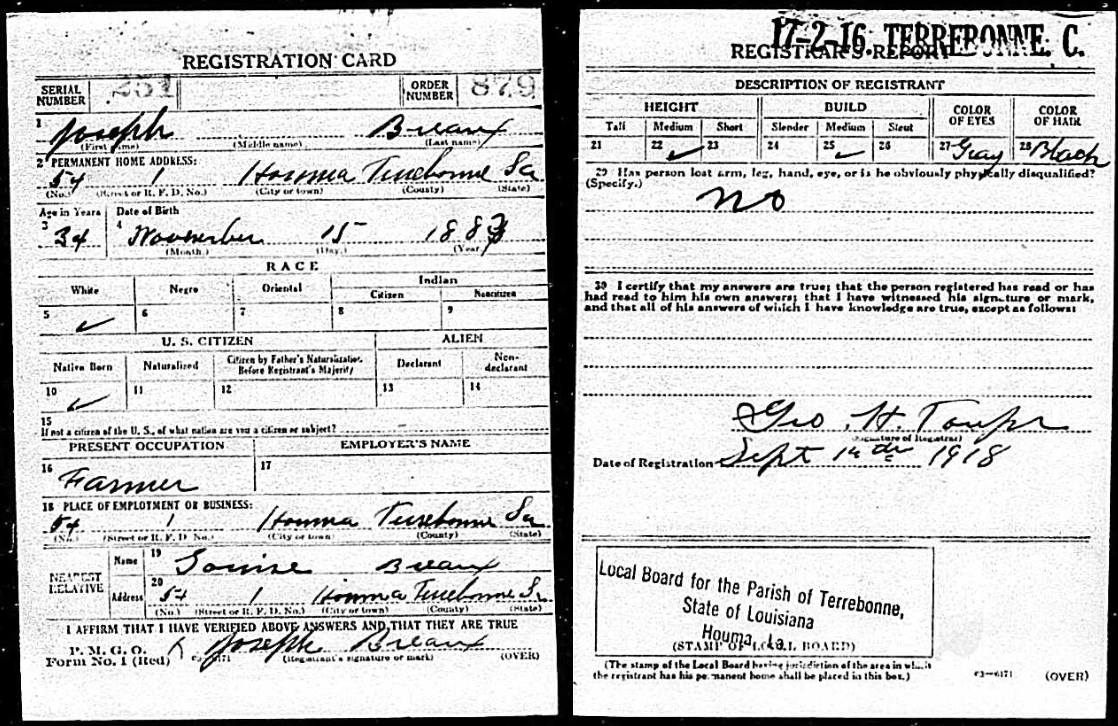 REGISTRATION CARD
SERIAL NUMBER 251 ORDER NUMBER 879
1 Joseph Breaux
(First name) (Middle name) (Last name)
2 PERMANENT HOME ADDRESS:
54 1 Houma Terrebonne La
(No.) (Street or R. F. D. No.) (City or town) (County) (State)
Age in Years Date of Birth
3 34 4 November 15 1883
(Month.) (Day.) (Year.)
RACE
White Negro Oriental Indian
Citizen Noncitizen
5 ✓ 6 7 8 9
U. S. CITIZEN ALIEN
Native Born Naturalized Citizen by Father's Naturalization Before Registrant's Majority Declarant Non-declarant
10 ✓ 11 12 13 14
15
If not a citizen of the U. S., of what nation are you a citizen or subject?
PRESENT OCCUPATION EMPLOYER'S NAME
16 Farmer 17
18 PLACE OF EMPLOYMENT OR BUSINESS:
54 1 Houma Terrebonne La
(No.) (Street or R. F. D. No.) (City or town) (County) (State)
NEAREST RELATIVE Name 19 Louise Breaux
Address 20 54 1 Houma Terrebonne La
(No.) (Street or R. F. D. No.) (City or town) (County) (State)
I AFFIRM THAT I HAVE VERIFIED ABOVE ANSWERS AND THAT THEY ARE TRUE
P. M. G. O.
Form No. 1 (Red) Joseph Breaux
(Registrant's signature or mark) (OVER)
17-2-16. TERREBONNE. C.
REGISTRAR'S REPORT
DESCRIPTION OF REGISTRANT
HEIGHT BUILD COLOR OF EYES COLOR OF HAIR
Tall Medium Short Slender Medium Stout
21 22 ✓ 23 24 25 ✓ 26 27 Gray 28 Black
29 Has person lost arm, leg, hand, eye, or is he obviously physically disqualified?
(Specify.)
no
30 I certify that my answers are true; that the person registered has read or has
had read to him his own answers; that I have witnessed his signature or mark,
and that all of his answers of which I have knowledge are true, except as follows:
Geo. H. Toups
(Signature of Registrar)
Date of Registration Sept 1918
Local Board for the Parish of Terrebonne,
State of Louisiana
Houma, La.
(STAMP OF LOCAL BOARD)
(The stamp of the Local Board having jurisdiction of the area in which
the registrant has his permanent home shall be placed in this box.)
c3—6171 (OVER)